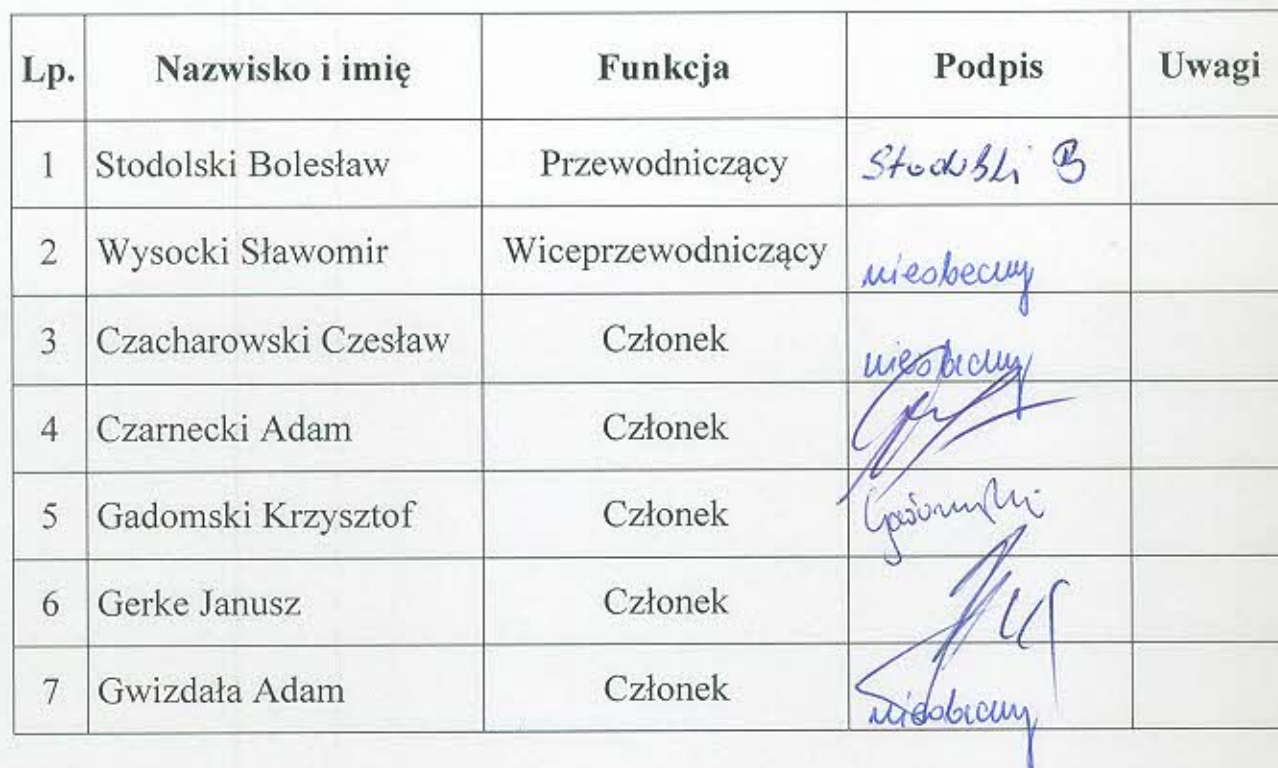 Lp. Nazwisko i imię Funkcja Podpis Uwagi
1 Stodolski Bolesław Przewodniczący Stodolski B
2 Wysocki Sławomir Wiceprzewodniczący nieobecny
3 Czacharowski Czesław Członek nieobecny
4 Czarnecki Adam Członek
5 Gadomski Krzysztof Członek Gadomski
6 Gerke Janusz Członek
7 Gwizdała Adam Członek nieobecny